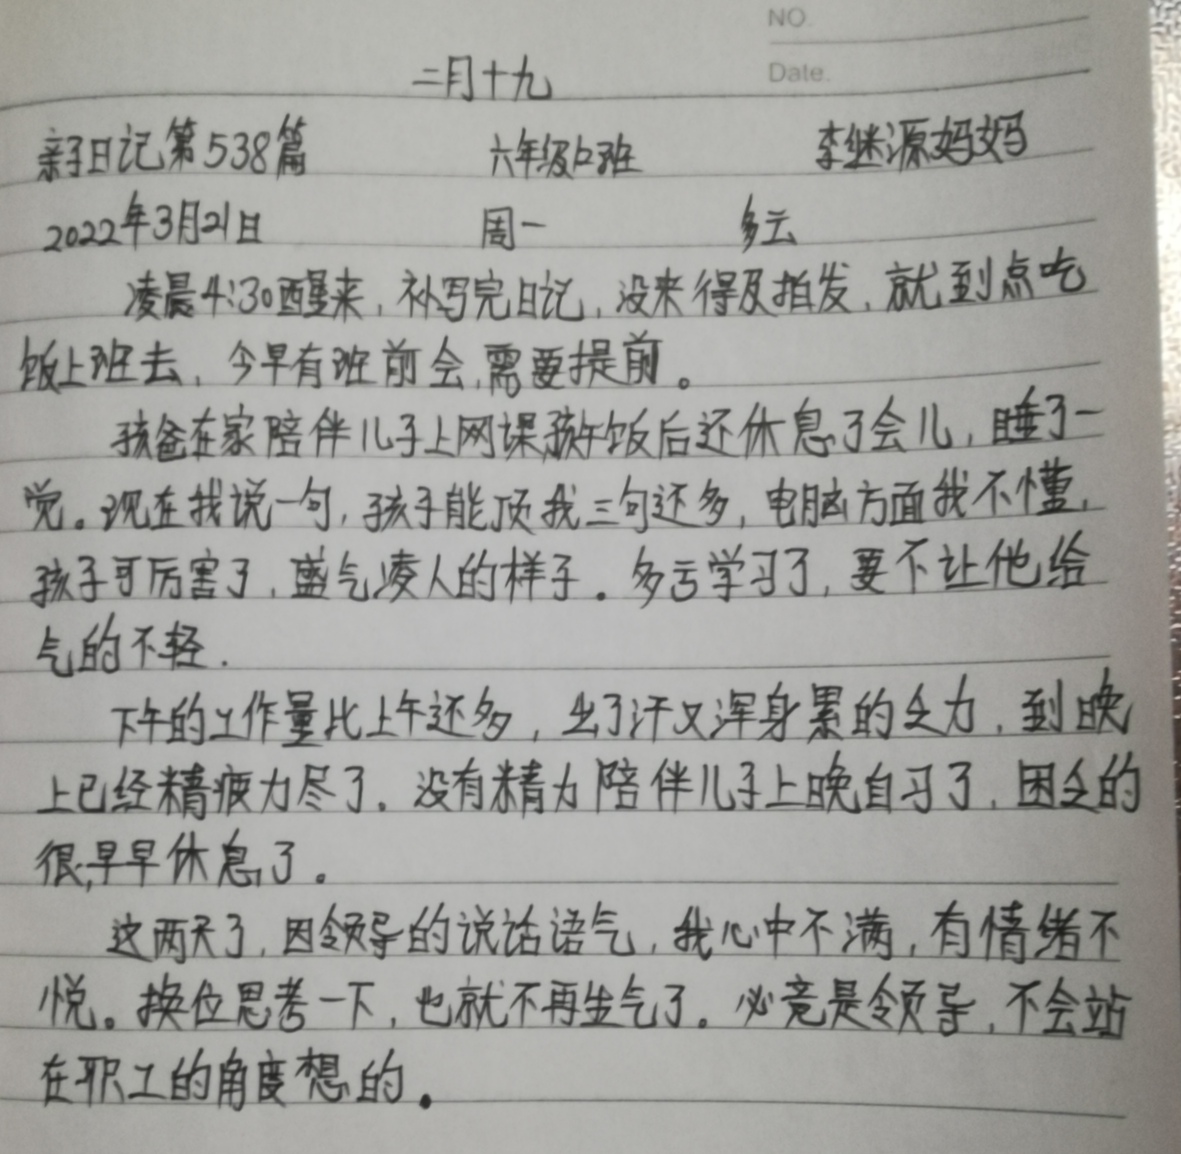 NO.
Date.
二月十九
亲子日记第538篇 六年级12班 李继源妈妈
2022年3月21日 周一 多云
凌晨4:30醒来,补写完日记,没来得及拍发,就到点吃
饭上班去,今早有班前会,需要提前。
孩爸在家陪伴儿子上网课,午饭后还休息了会儿,睡了一
觉。现在我说一句,孩子能顶我三句还多,电脑方面我不懂,
孩子可厉害了,盛气凌人的样子。多亏学习了,要不让他给
气的不轻.
下午的工作量比上午还多,出了汗又浑身累的乏力,到晚
上已经精疲力尽了。没有精力陪伴儿子上晚自习了,困乏的
很,早早休息了。
这两天了,因领导的说话语气,我心中不满,有情绪不
悦。换位思考一下,也就不再生气了。必竟是领导,不会站
在职工的角度想的。